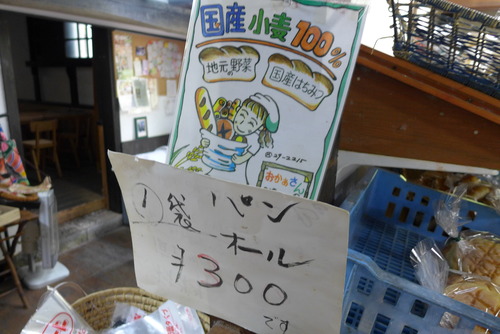 国産小麦100%
地元の野菜
国産はちみつ
おかあさん
① 袋 パン
オール
¥300
です